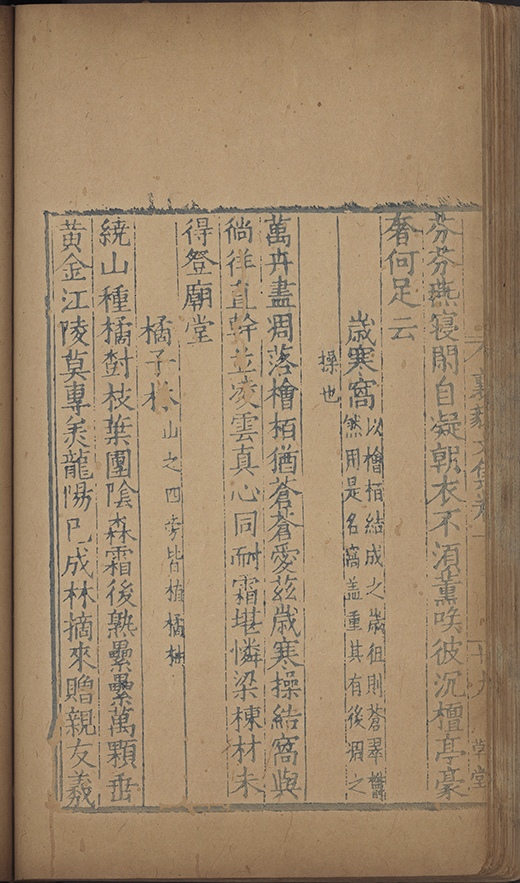 芬芬燕寢閒自凝朝衣不湏薰唉彼沉檀亭豪
奢何足云
歲寒窩以檜栢結成之歲徂則蒼翠欝
然用是名窩盖重其有後凋之
操也
萬卉盡凋落檜栢猶蒼蒼愛兹歲寒操結窩與
徜徉直幹並凌雲真心同耐霜堪憐梁棟材未
得登廟堂
橘子林山之四旁皆植橘林
繞山種橘對枝葉團陰森霜後熟纍纍萬顆垂
黄金江陵莫專羙龍陽已成林摘來贈親友義